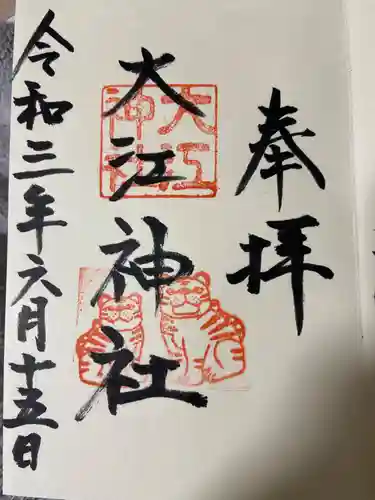 奉拝
大江神社
大江
神社
令和三年六月十五日